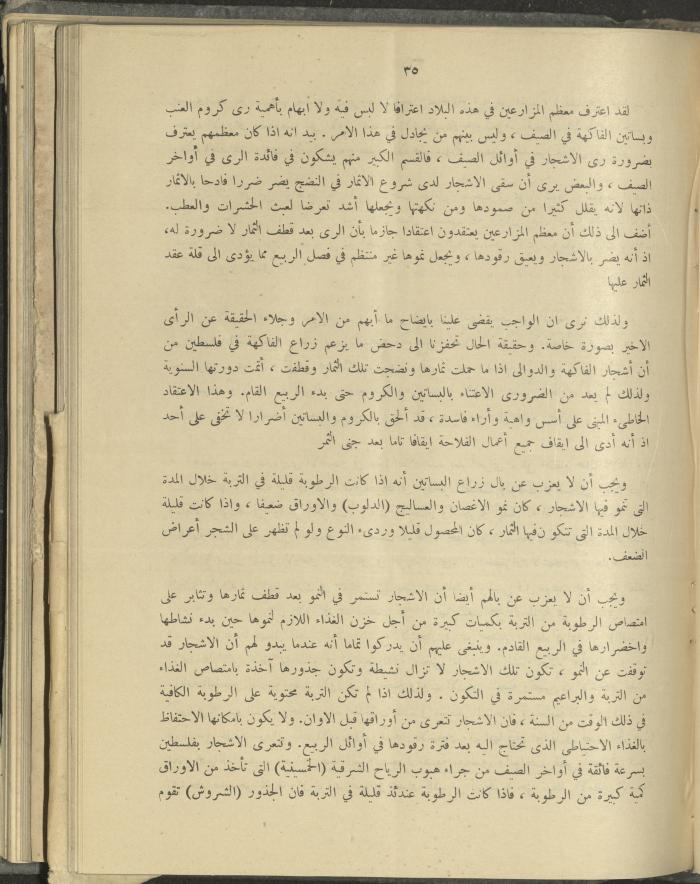 ٣٥
لقد اعترف معظم المزارعين في هذه البلاد اعترافا لا لبس فيه ولا أبهام بأهمية رى كروم العنب
وبساتين الفاكهة في الصيف ، وليس بينهم من يجادل في هذا الامر . بيد انه اذا كان معظمهم يعترف
بضرورة رى الاشجار في أوائل الصيف ، فالقسم الكبير منهم يشكون في فائدة الرى في أواخر
الصيف ، والبعض يرى أن سقى الاشجار لدى شروع الاثمار في النضج يضر ضررا فادحا بالاثمار
ذاتها لانه يقلل كثيرا من صمودها ومن نكهتها ويجعلها أشد تعرضا لعبث الحشرات والعطب.
أضف الى ذلك أن معظم المزارعين يعتقدون اعتقادا جازما بأن الرى بعد قطف الثمار لا ضرورة له،
اذ أنه يضر بالاشجار ويعيق رقودها ، ويجعل نموها غير منتظم في فصل الربيع مما يؤدى الى قلة عقد
الثمار عليها
ولذلك نرى ان الواجب يقضى علينا بايضاح ما أبهم من الامر وجلاء الحقيقة عن الرأى
الاخير بصورة خاصة. وحقيقة الحال تحفزنا الى دحض ما يزعم زراع الفاكهة في فلسطين من
أن أشجار الفاكهة والدوالى اذا ما حملت ثمارها ونضجت تلك الثمار وقطفت ، أتمت دورتها السنوية
ولذلك لم يعد من الضرورى الاعتناء بالبساتين والكروم حتى بدء الربيع القام. وهذا الاعتقاد
الخاطىء المبنى على أسس واهية وأراء فاسدة ، قد ألحق بالكروم والبساتين أضرارا لا تخفى على أحد
اذ أنه أدى الى ايقاف جميع أعمال الفلاحة ايقافا تاما بعد جنى الثمر
ويجب أن لا يعزب عن بال زراع البساتين أنه اذا كانت الرطوبة قليلة في التربة خلال المدة
التى تنمو فيها الاشجار ، كان نمو الاغصان والعساليج (الدلوب) والاوراق ضعيفا ، واذا كانت قليلة
خلال المدة التى تتكو نفيها الثمار ، كان المحصول قليلا وردىء النوع ولو لم تظهر على الشجر أعراض
الضعف.
ويجب أن لا يعزب عن بالهم أيضا أن الاشجار تستمر في النمو بعد قطف ثمارها وتثابر على
امتصاص الرطوبة من التربة بكميات كبيرة من أجل خزن الغذاء اللازم لنموها حين بدء نشاطها
واخضرارها في الربيع القادم. وينبغى عليهم أن يدركوا تماما أنه عندما يبدو لهم أن الاشجار قد
توقفت عن النمو ، تكون تلك الاشجار لا تزال نشيطة وتكون جذورها آخذة بامتصاص الغذاء
من التربة والبراعيم مستمرة في التكون . ولذلك اذا لم تكن التربة محتوية على الرطوبة الكافية
في ذلك الوقت من السنة ، فان الاشجار تتعرى من أوراقها قبل الاوان. ولا يكون بامكانها الاحتفاظ
بالغذاء الاحتياطى الذى تحتاج اليه بعد فترة رقودها في أوائل الربيع. وتتعرى الاشجار بفلسطين
بسرعة فائقة في أواخر الصيف من جراء هبوب الرياح الشرقية (الخمسينية) التى تأخذ من الاوراق
كمية كبيرة من الرطوبة ، فاذا كانت الرطوبة عندئذ قليلة في التربة فان الجذور (الشروش) تقوم